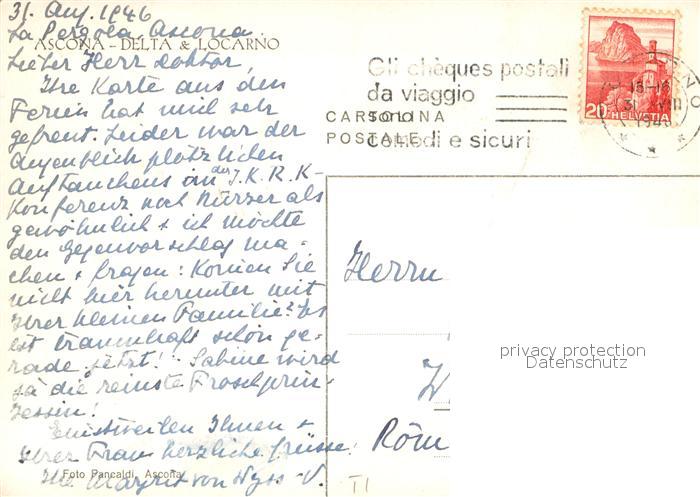 31. Aug. 1946
La Pergola, Ascona.
ASCONA - DELTA & LOCARNO
Lieber Herr Doktor,
Ihre Karte aus den
Ferien hat mich sehr
gefreut. Leider war der
Augenblick plötzlichen
Auftauchens an der I.K.R.K-
Konferenz noch kürzer als
gewöhnlich + ich möchte
den Gegenvorschlag ma-
chen + fragen: Kommen Sie
nicht hier herunter mit
Ihrer kleinen Familie? Es
ist traumhaft schön ge-
rade jetzt! Sabine wird
ja die reinste Froschprin-
zessin!
Einstweilen Ihnen +
Ihrer Frau herzliche Grüsse
Ihre Margrit von Wyss-V.
Foto Pancaldi, Ascona
Gli chèques postali
da viaggio
sono
comodi e sicuri
CARTOLINA
POSTALE
20 HELVETIA
15-16
31. VIII
1946
Herrn
W
Röm
privacy protection
Datenschutz
T1